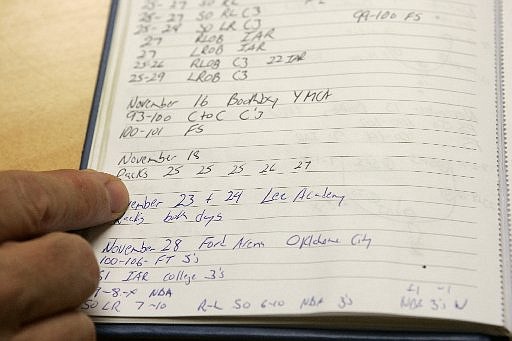 25-27 SO RL C3
25-29 SO LR C3 99-100 FS
27 RLOB IAR
27 LROB IAR
25-26 RLOB C3 22 IAR
25-29 LROB C3
November 16 Boothbay YMCA
93-100 C to C C's
100-101 FS
November 18
Packs 25 25 25 26 27
ember 23 + 24 Lee Academy
both days
November 28 Ford Arena Oklahoma City
100-106- FT S's
51 IAR college 3's
-8-x NBA +1 -1
SO LR 7-10 R-L SO 6-10 NBA 3's NBA 3's W